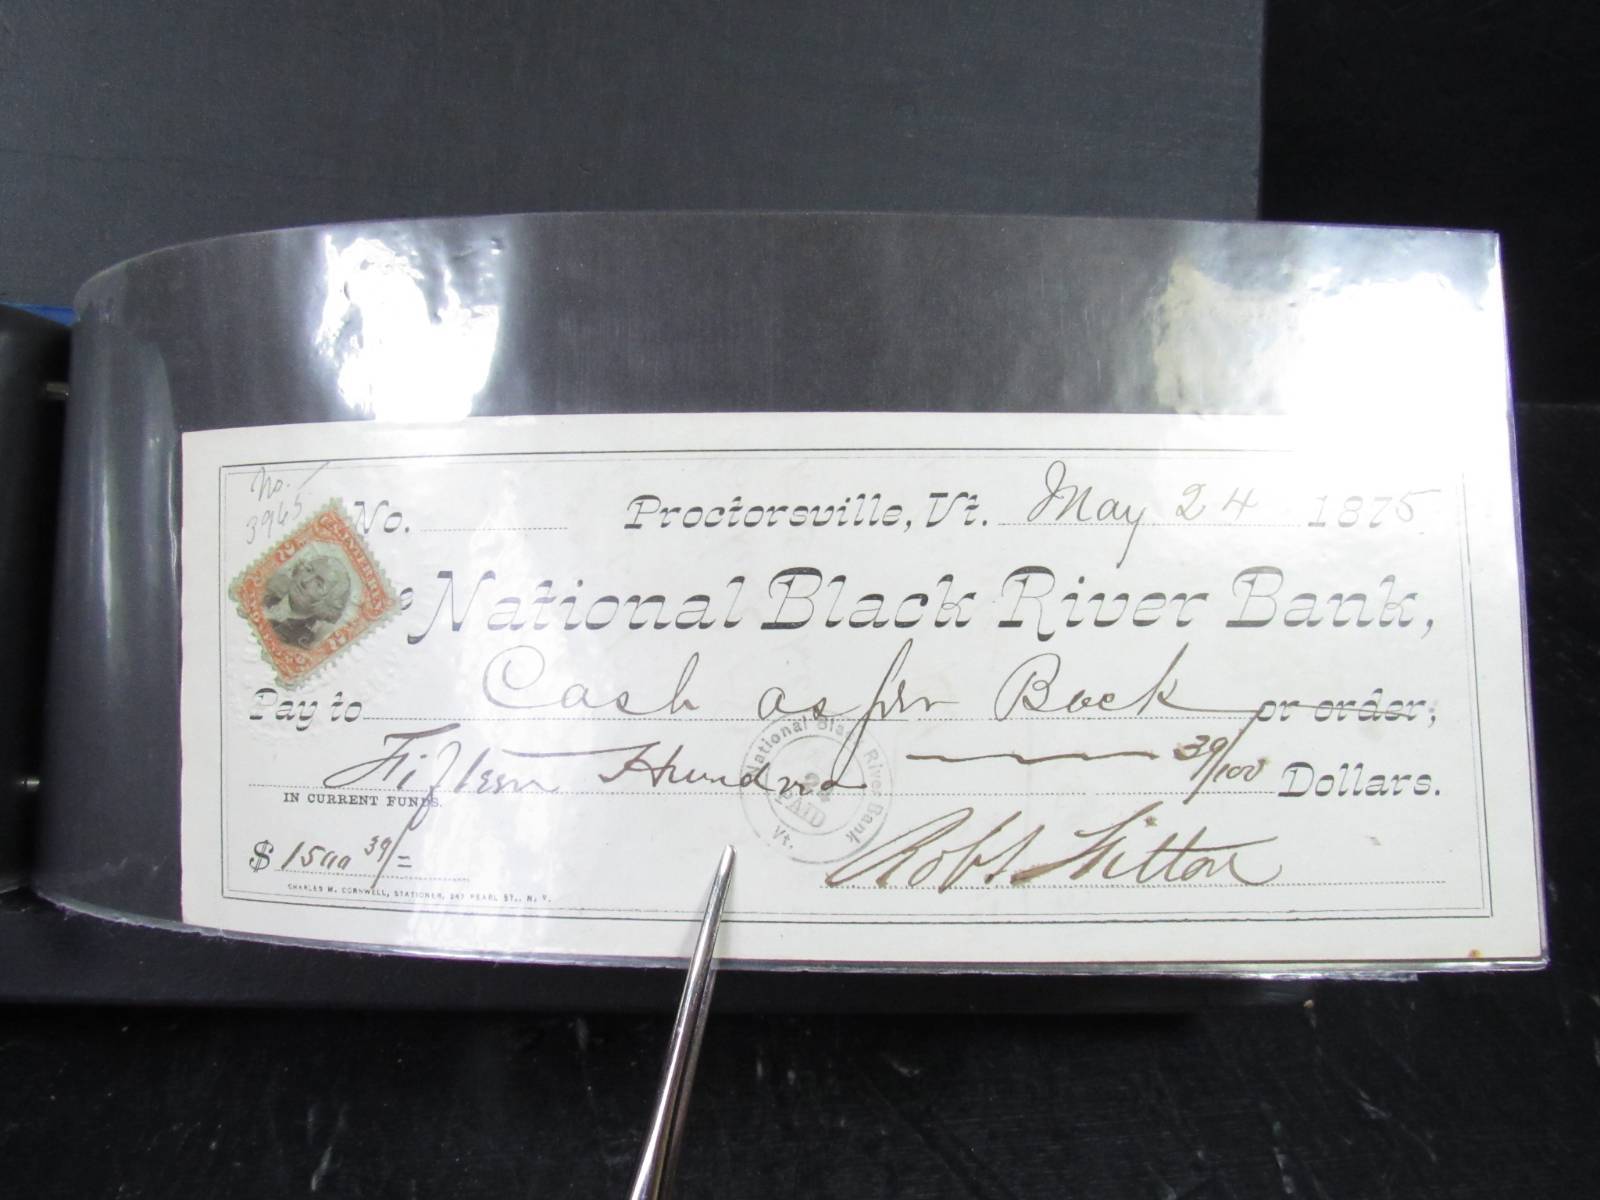 No.
3965
No. Proctorsville, Vt. May 24 1875
National Black River Bank,
Pay to Cash as per Back or order,
Fifteen Hundred 39/100 Dollars.
IN CURRENT FUNDS.
National Black River Bank
24
PAID
Vt.
$ 1500 39/=
Robt
CHARLES M. CORNWELL, STATIONER, 247 PEARL ST., N. Y.